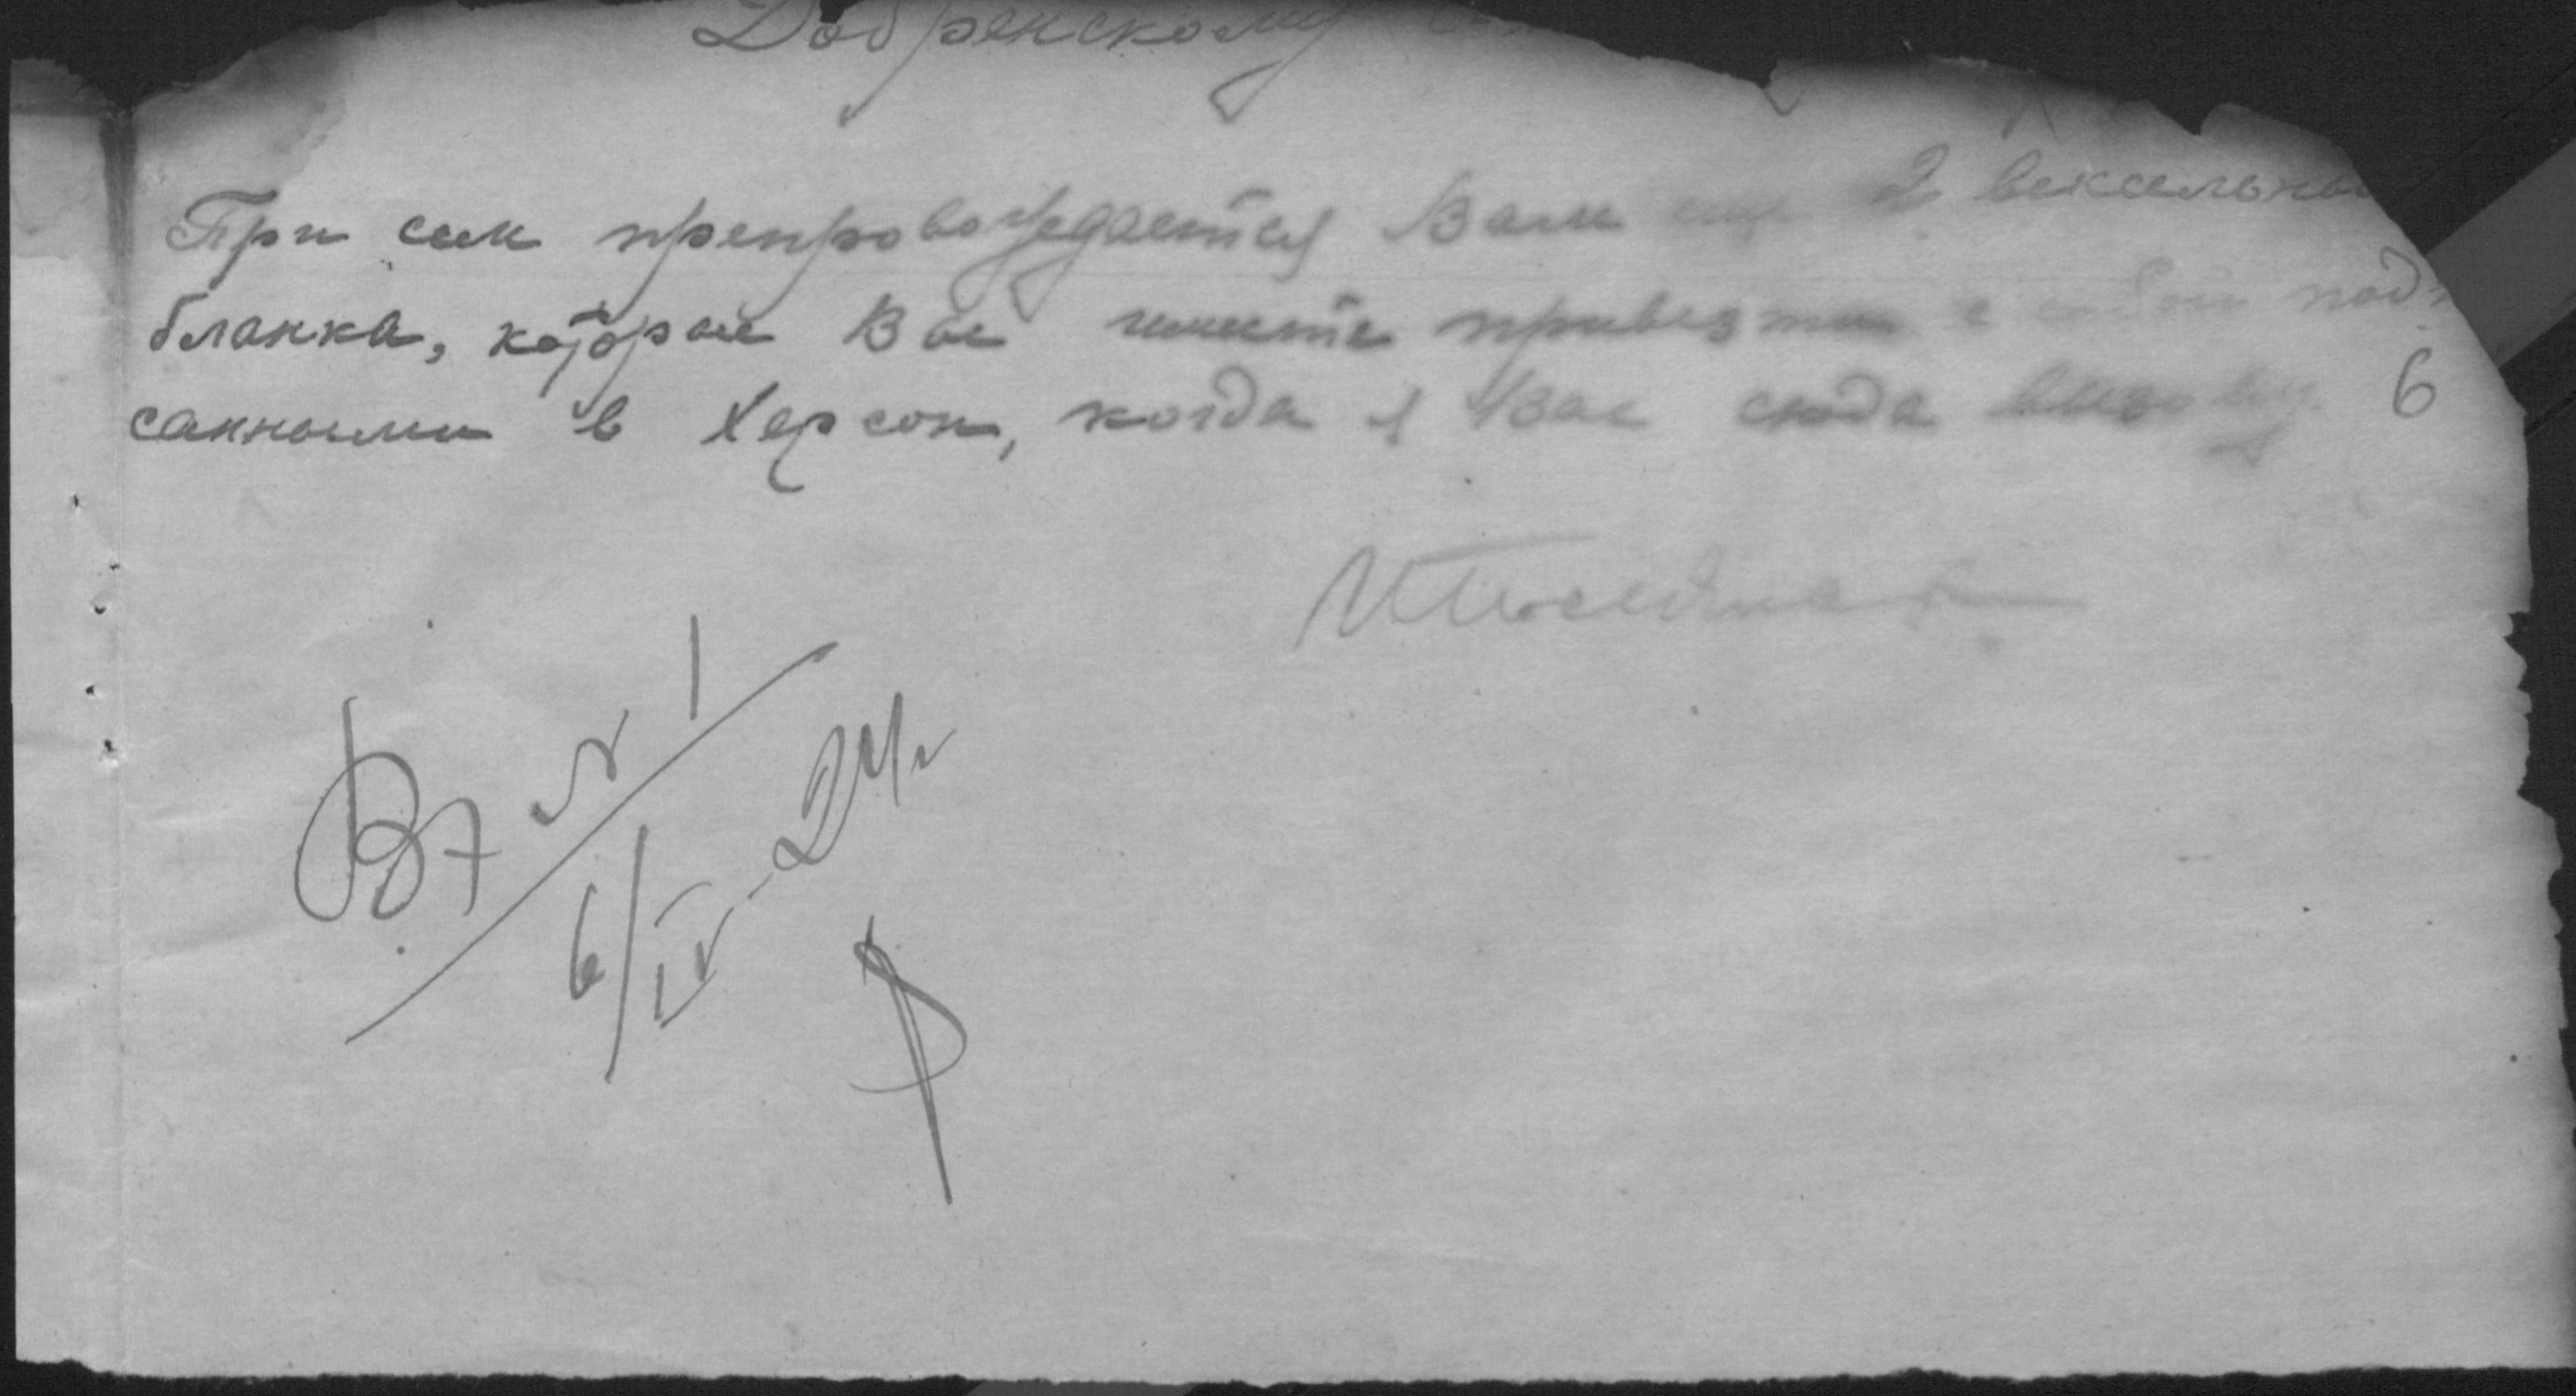 Добренскому
При сем препровождается Вам еще 2 вексельны
бланка, которые Вы имеете привезти с собой подп
санными в Херсон, когда я Вас сюда вызову. 6
Вх № 1
6/IV-24г